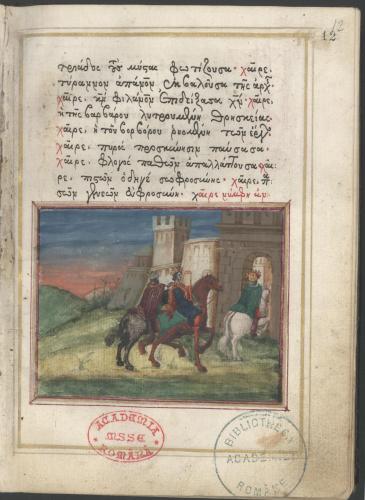 12 12
τριάδος τοὺς μύστας φωτίζουσα· χαῖρε,
τύραννον ἀπάνον ἐκβαλοῦσα τῆς ἀρχῆ·
χαῖρε, κν φιλάνον ἐπιδείξασα χν· χαῖρε,
ἡ τῆς βαρβάρου λυτρουμένη θρησκείας·
χαῖρε, ἡ τοῦ βορβόρου ῥυομένη τῶν ἔργω·
χαῖρε, πυρὸς προσκύνησιν παύσασα·
χαῖρε, φλογὸς παθῶν ἀπαλλάττουσα· χαῖ
ρε, πιστῶν ὁδηγὲ σωφροσύνης· χαῖρε, π
σῶν γενεῶν εὐφροσύνη· χαῖρε νύμφη
ACADEMIA
MSSE
ROMANĂ
BIBLIOTHECA
ACADEMIEI
ROMÂNE